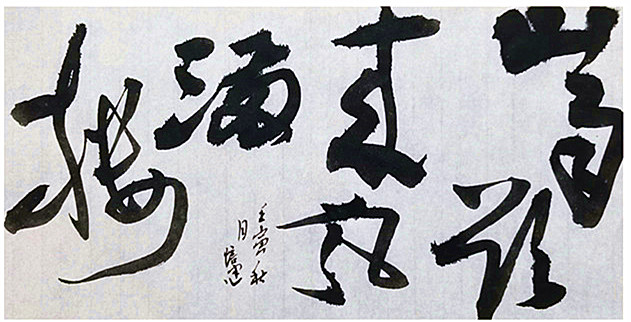 山雨欲
来风
满
楼
壬寅秋
月